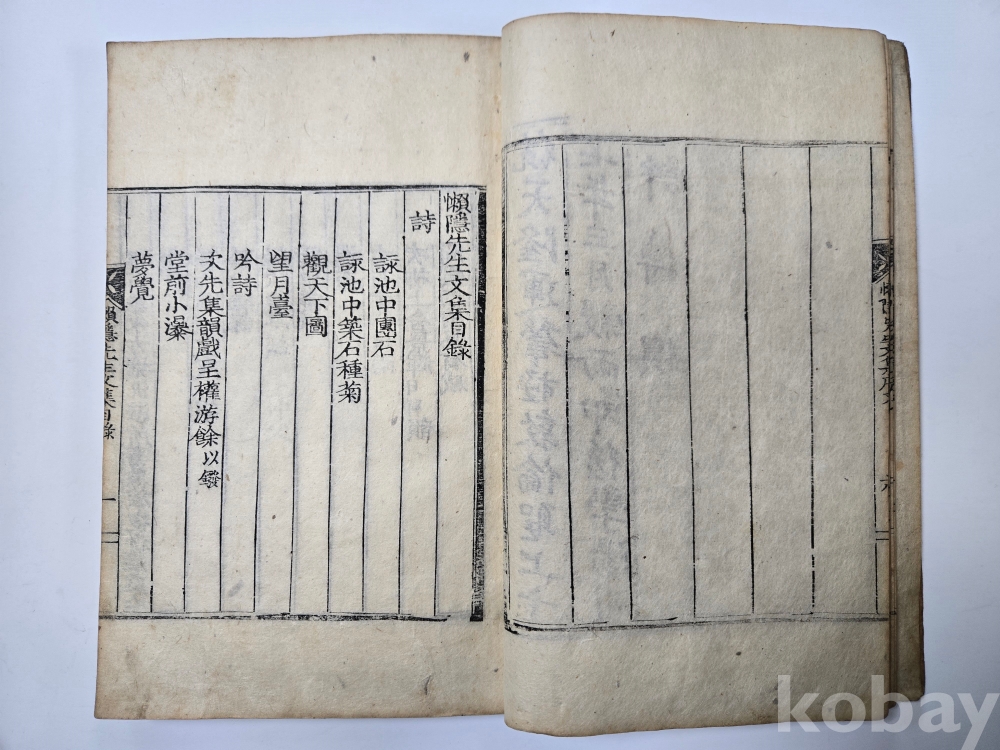 懶隱先生文集目錄
詩
詠池中團石
詠池中築石種菊
觀天下圖
望月臺
吟詩
次先集韻戲呈權游餘以鏺
堂前小瀑
夢覺
懶隱先生文集目錄
一
kobay